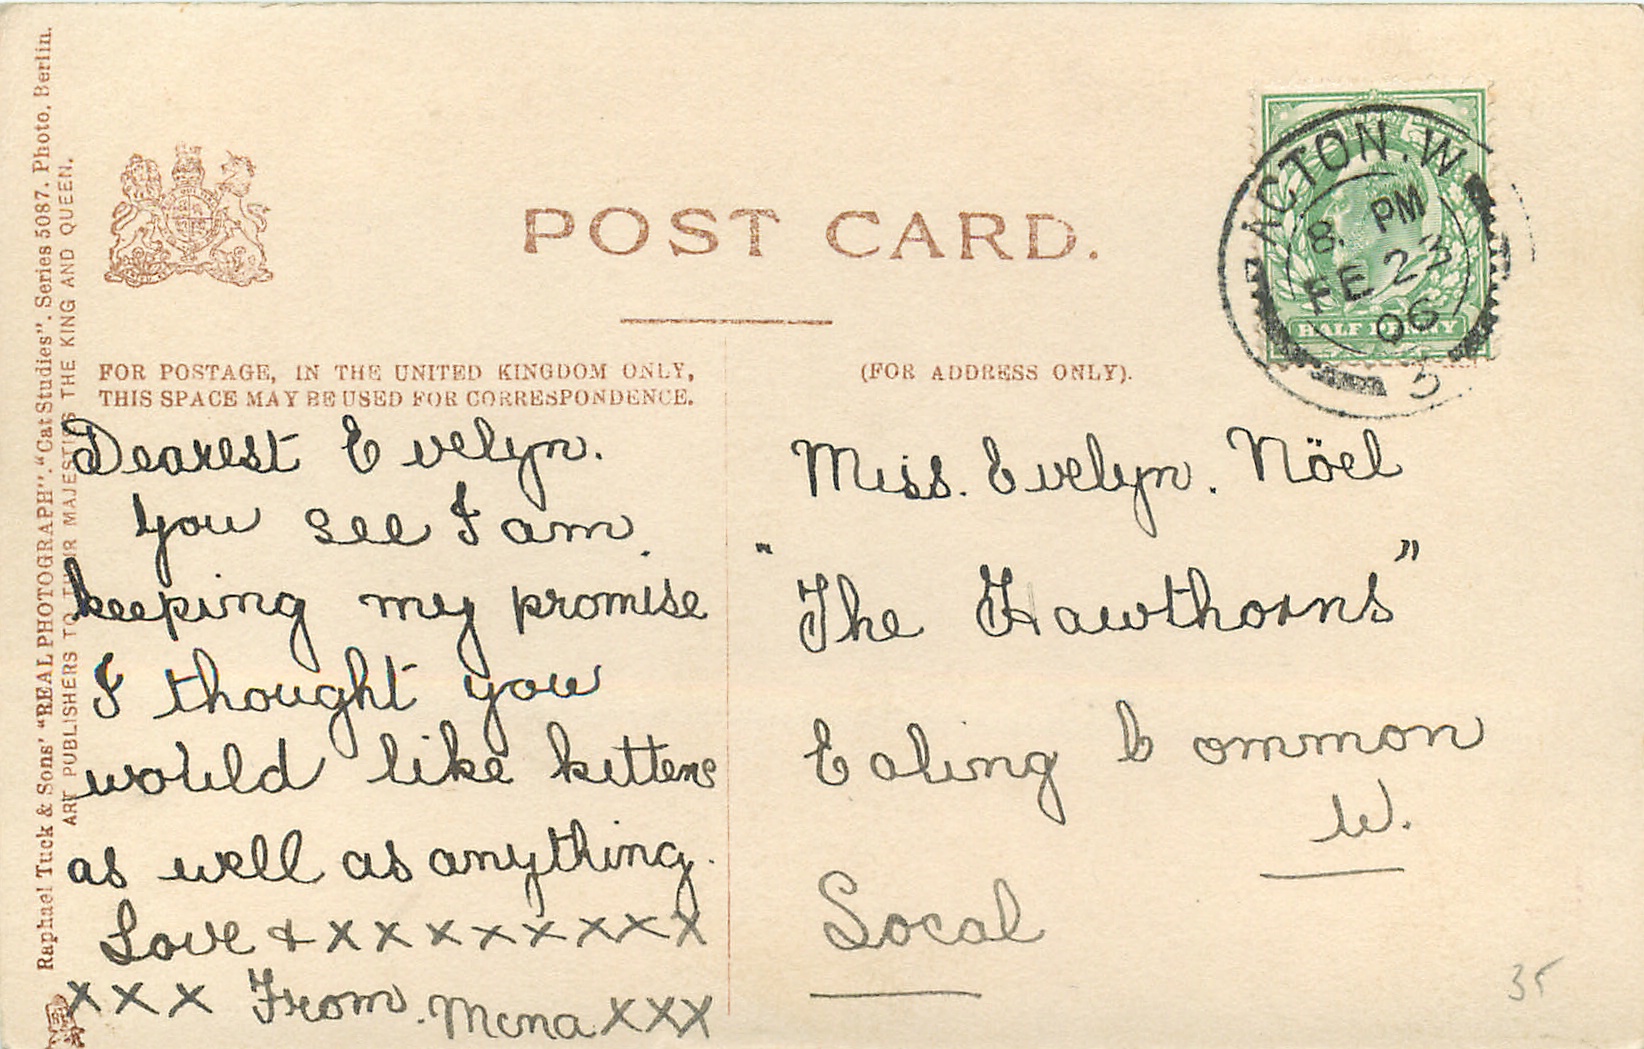 Raphael Tuck & Sons' "REAL PHOTOGRAPH". "Cat Studies". Series 5087. Photo. Berlin.
ART PUBLISHERS TO THEIR MAJESTIES THE KING AND QUEEN.
POST CARD.
FOR POSTAGE, IN THE UNITED KINGDOM ONLY,
THIS SPACE MAY BE USED FOR CORRESPONDENCE.
(FOR ADDRESS ONLY).
ACTON. W
8. PM
FE 23
06
5
HALF PENNY
Dearest Evelyn.
you see I am.
keeping my promise
I thought you
would like kittens
as well as anything.
Love + x x x x x x x x
x x x From. Mena x x x
Miss. Evelyn. Nöel
"The Hawthorns"
Ealing Common
W.
Local
35